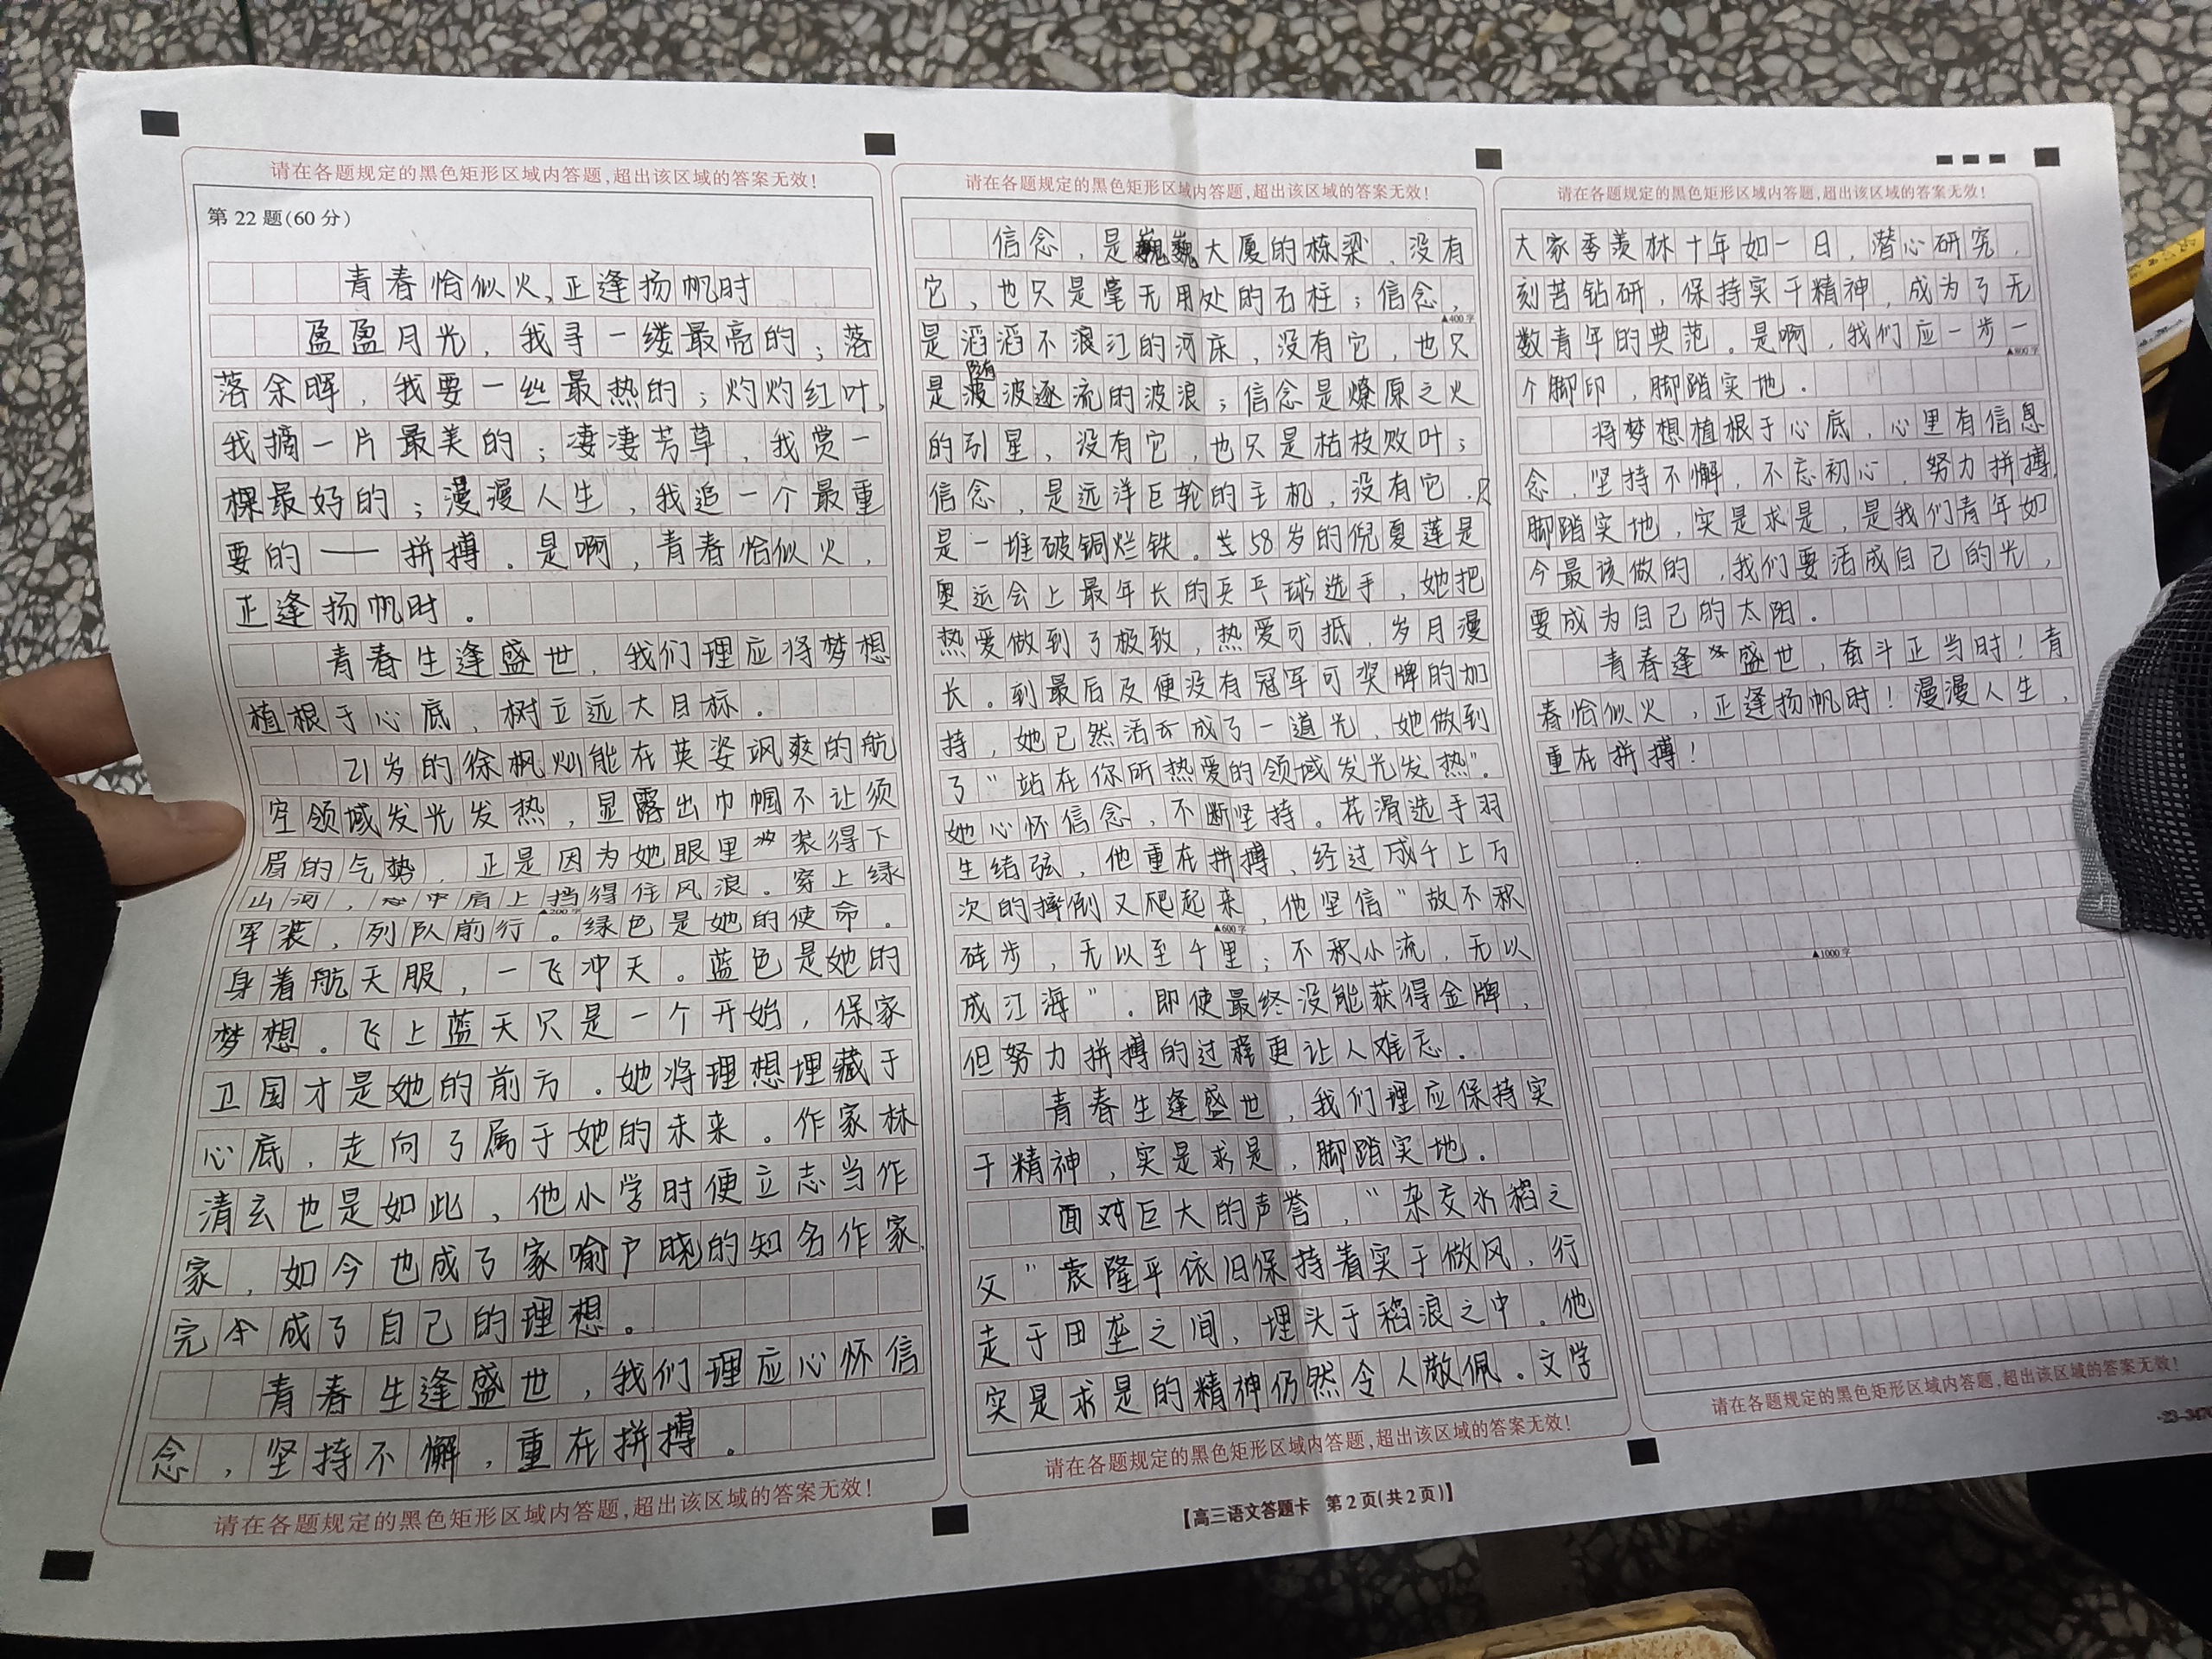 请在各题规定的黑色矩形区域内答题,超出该区域的答案无效!
第 22 题(60 分)
青春恰似火,正逢扬帆时
盈盈月光,我寻一缕最亮的;落
落余晖,我要一丝最热的;灼灼红叶,
我摘一片最美的;凄凄芳草,我赏一
棵最好的;漫漫人生,我追一个最重
要的——拼搏。是啊,青春恰似火,
正逢扬帆时。
青春生逢盛世,我们理应将梦想
植根于心底,树立远大目标。
21岁的徐枫灿能在英姿飒爽的航
空领域发光发热,显露出巾帼不让须
眉的气势,正是因为她眼里装得下
山河,肩上挡得住风浪。穿上绿
▲200字
军装,列队前行。绿色是她的使命。
身着航天服,一飞冲天。蓝色是她的
梦想。飞上蓝天只是一个开始,保家
卫国才是她的前方。她将理想埋藏于
心底,走向了属于她的未来。作家林
清玄也是如此,他小学时便立志当作
家,如今也成了家喻户晓的知名作家,
完成了自己的理想。
青春生逢盛世,我们理应心怀信
念,坚持不懈,重在拼搏。
请在各题规定的黑色矩形区域内答题,超出该区域的答案无效!
请在各题规定的黑色矩形区域内答题,超出该区域的答案无效!
信念,是巍巍大厦的栋梁,没有
它,也只是毫无用处的石柱;信念,
▲400字
是滔滔不浪江的河床,没有它,也只
是随波逐流的波浪;信念是燎原之火
的引星,没有它,也只是枯枝败叶;
信念,是远洋巨轮的主机,没有它,只
是一堆破铜烂铁。58岁的倪夏莲是
奥运会上最年长的乒乓球选手,她把
热爱做到了极致,热爱可抵,岁月漫
长。到最后及便没有冠军可奖牌的加
持,她已然活成了一道光,她做到
了“站在你所热爱的领域发光发热”。
她心怀信念,不断坚持。花滑选手羽
生结弦,他重在拼搏,经过成千上万
次的摔倒又爬起来,他坚信“故不积
▲600字
硅步,无以至千里;不积小流,无以
成江海”。即使最终没能获得金牌,
但努力拼搏的过程更让人难忘。
青春生逢盛世,我们理应保持实
干精神,实是求是,脚踏实地。
面对巨大的声誉,“杂交水稻之
父”袁隆平依旧保持着实干做风,行
走于田垄之间,埋头于稻浪之中。他
实是求是的精神仍然令人敬佩。文学
请在各题规定的黑色矩形区域内答题,超出该区域的答案无效!
【高三语文答题卡 第 2 页(共 2 页)】
请在各题规定的黑色矩形区域内答题,超出该区域的答案无效!
大家季羡林十年如一日,潜心研究,
刻苦钻研,保持实干精神,成为了无
数青年的典范。是啊,我们应一步一
▲800字
个脚印,脚踏实地。
将梦想植根于心底,心里有信息
念,坚持不懈,不忘初心,努力拼搏,
脚踏实地,实是求是,是我们青年如
今最该做的,我们要活成自己的光,
要成为自己的太阳。
青春逢盛世,奋斗正当时!青
春恰似火,正逢扬帆时!漫漫人生,
重在拼搏!
▲1000字
请在各题规定的黑色矩形区域内答题,超出该区域的答案无效!